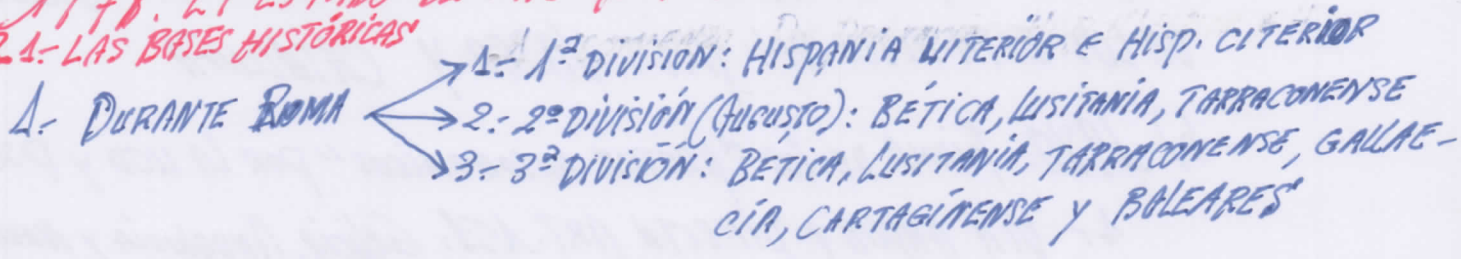 2.1- LAS BASES HISTÓRICAS
1.- DURANTE ROMA
1.- 1ª DIVISIÓN: HISPANIA ULTERIOR E HISP. CITERIOR
2.- 2ª DIVISIÓN (AUGUSTO): BÉTICA, LUSITANIA, TARRACONENSE
3.- 3ª DIVISIÓN: BÉTICA, LUSITANIA, TARRACONENSE, GALLAE-
CÍA, CARTAGINENSE y BALEARES